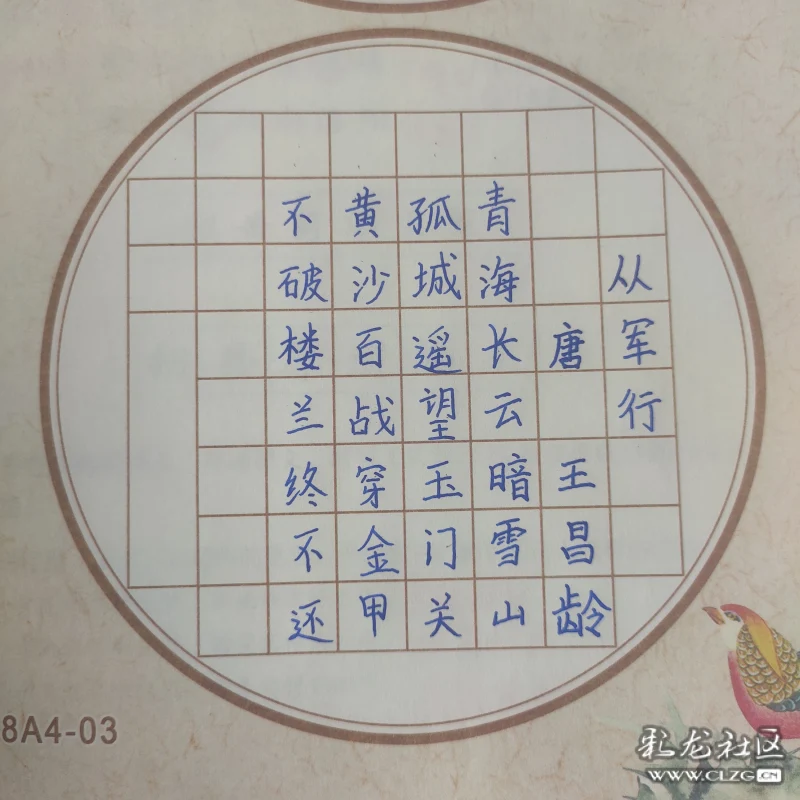 从军行
唐 王昌龄
青海长云暗雪山
孤城遥望玉门关
黄沙百战穿金甲
不破楼兰终不还
8A4-03
彩龙社区
WWW.CLZG.CN